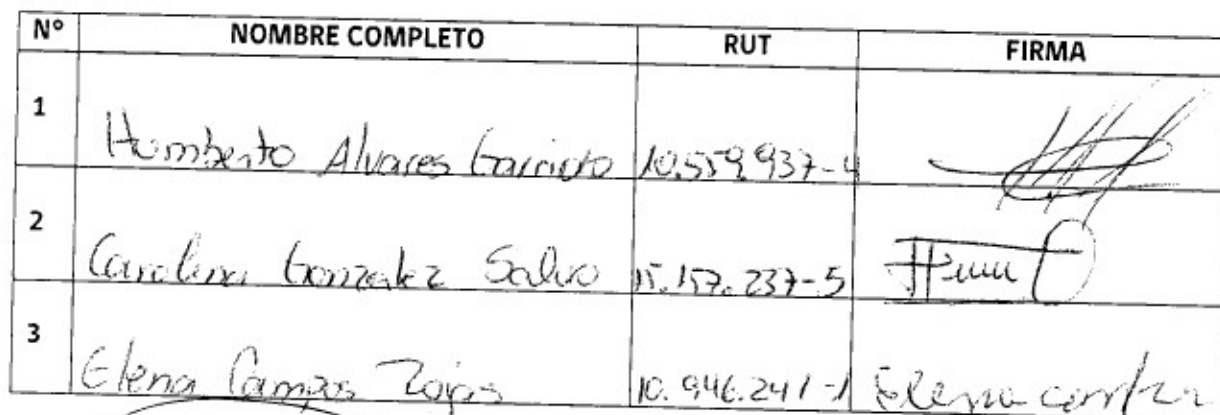 Nº NOMBRE COMPLETO RUT FIRMA
1 Humberto Alvares Garrido 10.559.937-4
2 Carolina Gonzalez Salvo 15.157.237-5
3 Elena Campos Rojas 10.946.241-1 Elena